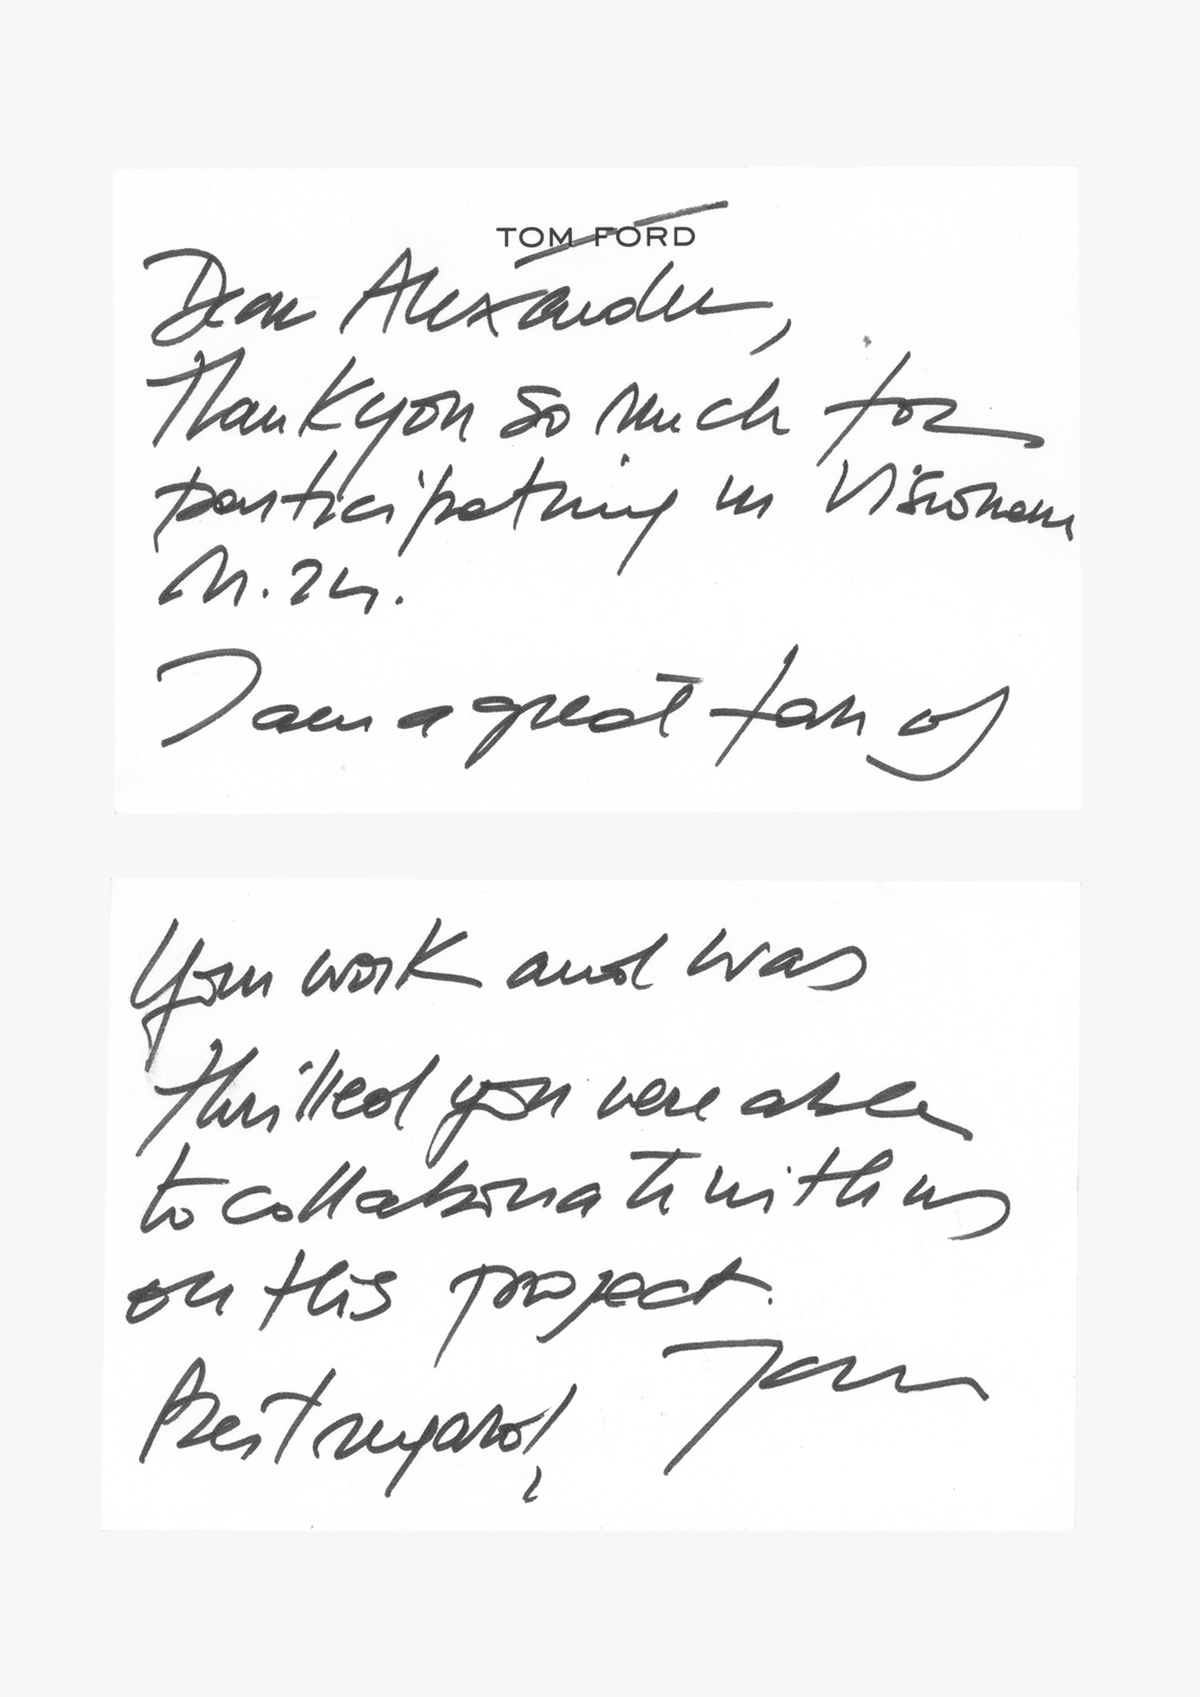 TOM FORD
Dear Alexander,
Thank you so much for
participating in Visionaire
N. 24.
I am a great fan of
your work and was
thrilled you were able
to collaborate with us
on this project.
Best regard,
Tom